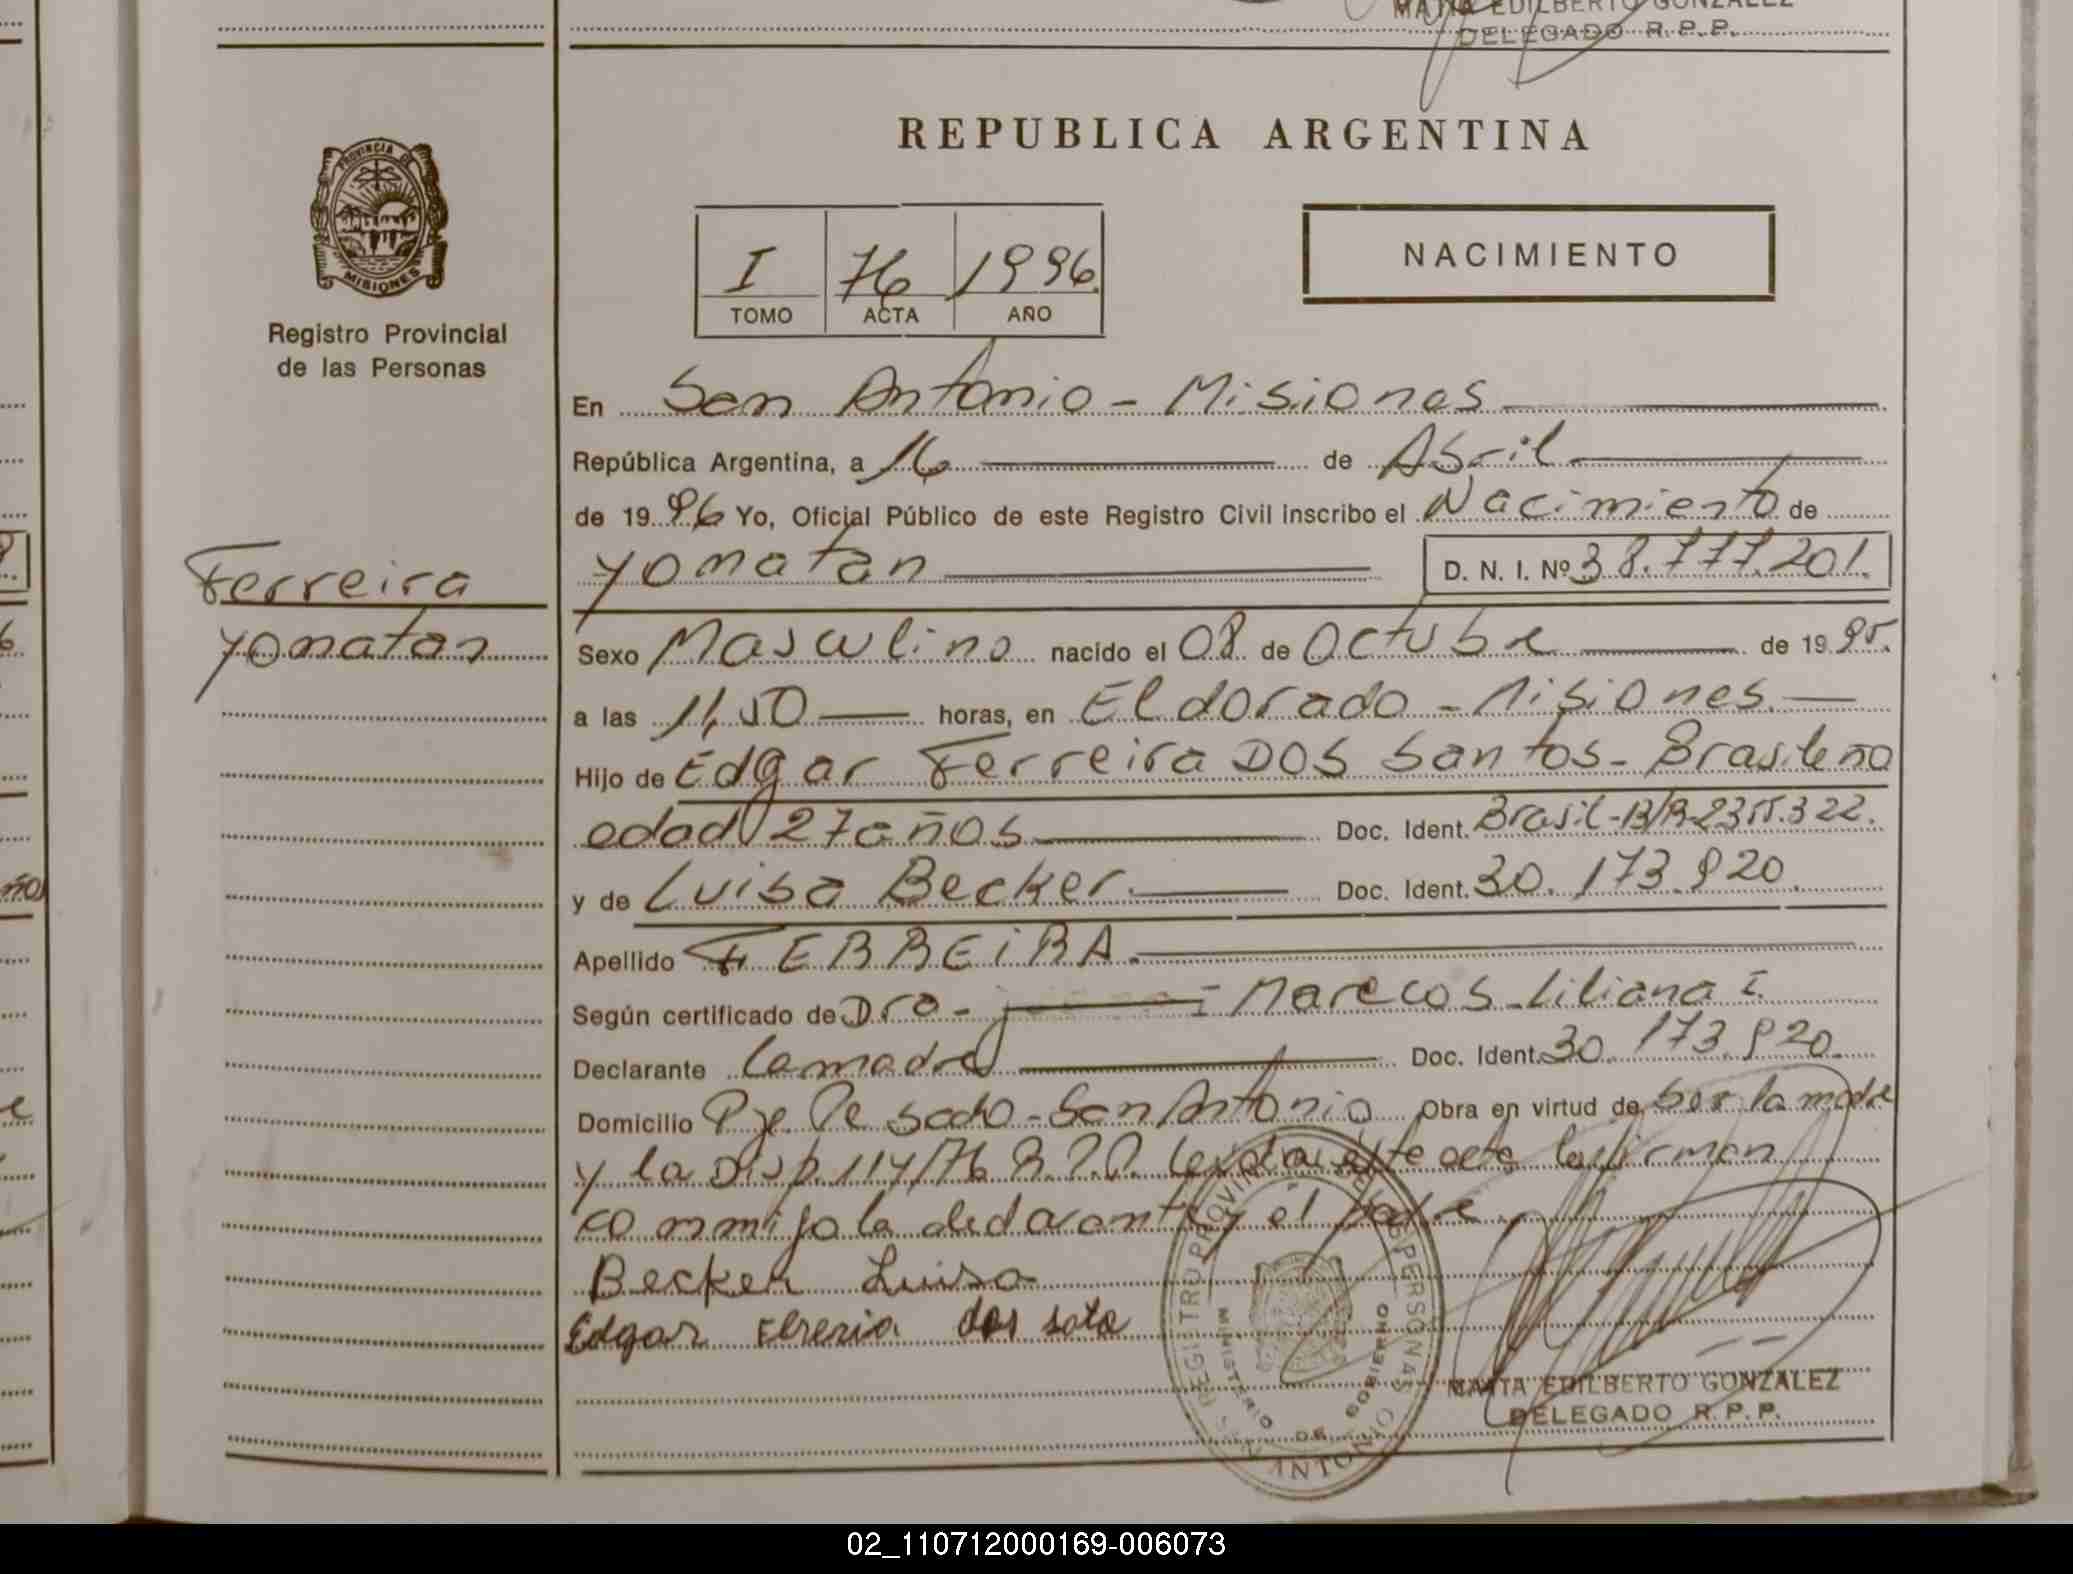 MATTA EDILBERTO GONZALEZ
DELEGADO R.P.P.
REPUBLICA ARGENTINA
PROVINCIA DE
MISIONES
Registro Provincial
de las Personas
I 76 1996.
TOMO ACTA AÑO
NACIMIENTO
En San Antonio - Misiones
República Argentina, a 16 de Abril
de 1996 Yo, Oficial Público de este Registro Civil inscribo el Nacimiento de
Ferreira
yonatan
yonatan D. N. I. Nº 38.777.201.
Sexo Masculino nacido el 08 de Octubre de 1995.
a las 11,50 horas, en Eldorado - Misiones.
Hijo de Edgar Ferreira DOS Santos - Brasileño
edad 27 años Doc. Ident. Brasil-13/R-2355.322.
y de Luisa Becker. Doc. Ident. 30.173.920.
Apellido FERREIRA.
Según certificado de Dra - Marecos - Liliana I.
Declarante la madre Doc. Ident. 30.173.920.
Domicilio Pje. Pesado - San Antonio Obra en virtud de ser la madre
y la Disp. 114/76 R.P.P. Leida este acta la firman
conmigo la declarante y el padre.
Becker Luisa
Edgar Ebreria dos sato
REGISTRO PROVINCIAL DE LAS PERSONAS
MINISTERIO DE GOBIERNO
SAN ANTONIO
MATTA EDILBERTO GONZALEZ
DELEGADO R.P.P.
02_110712000169-006073